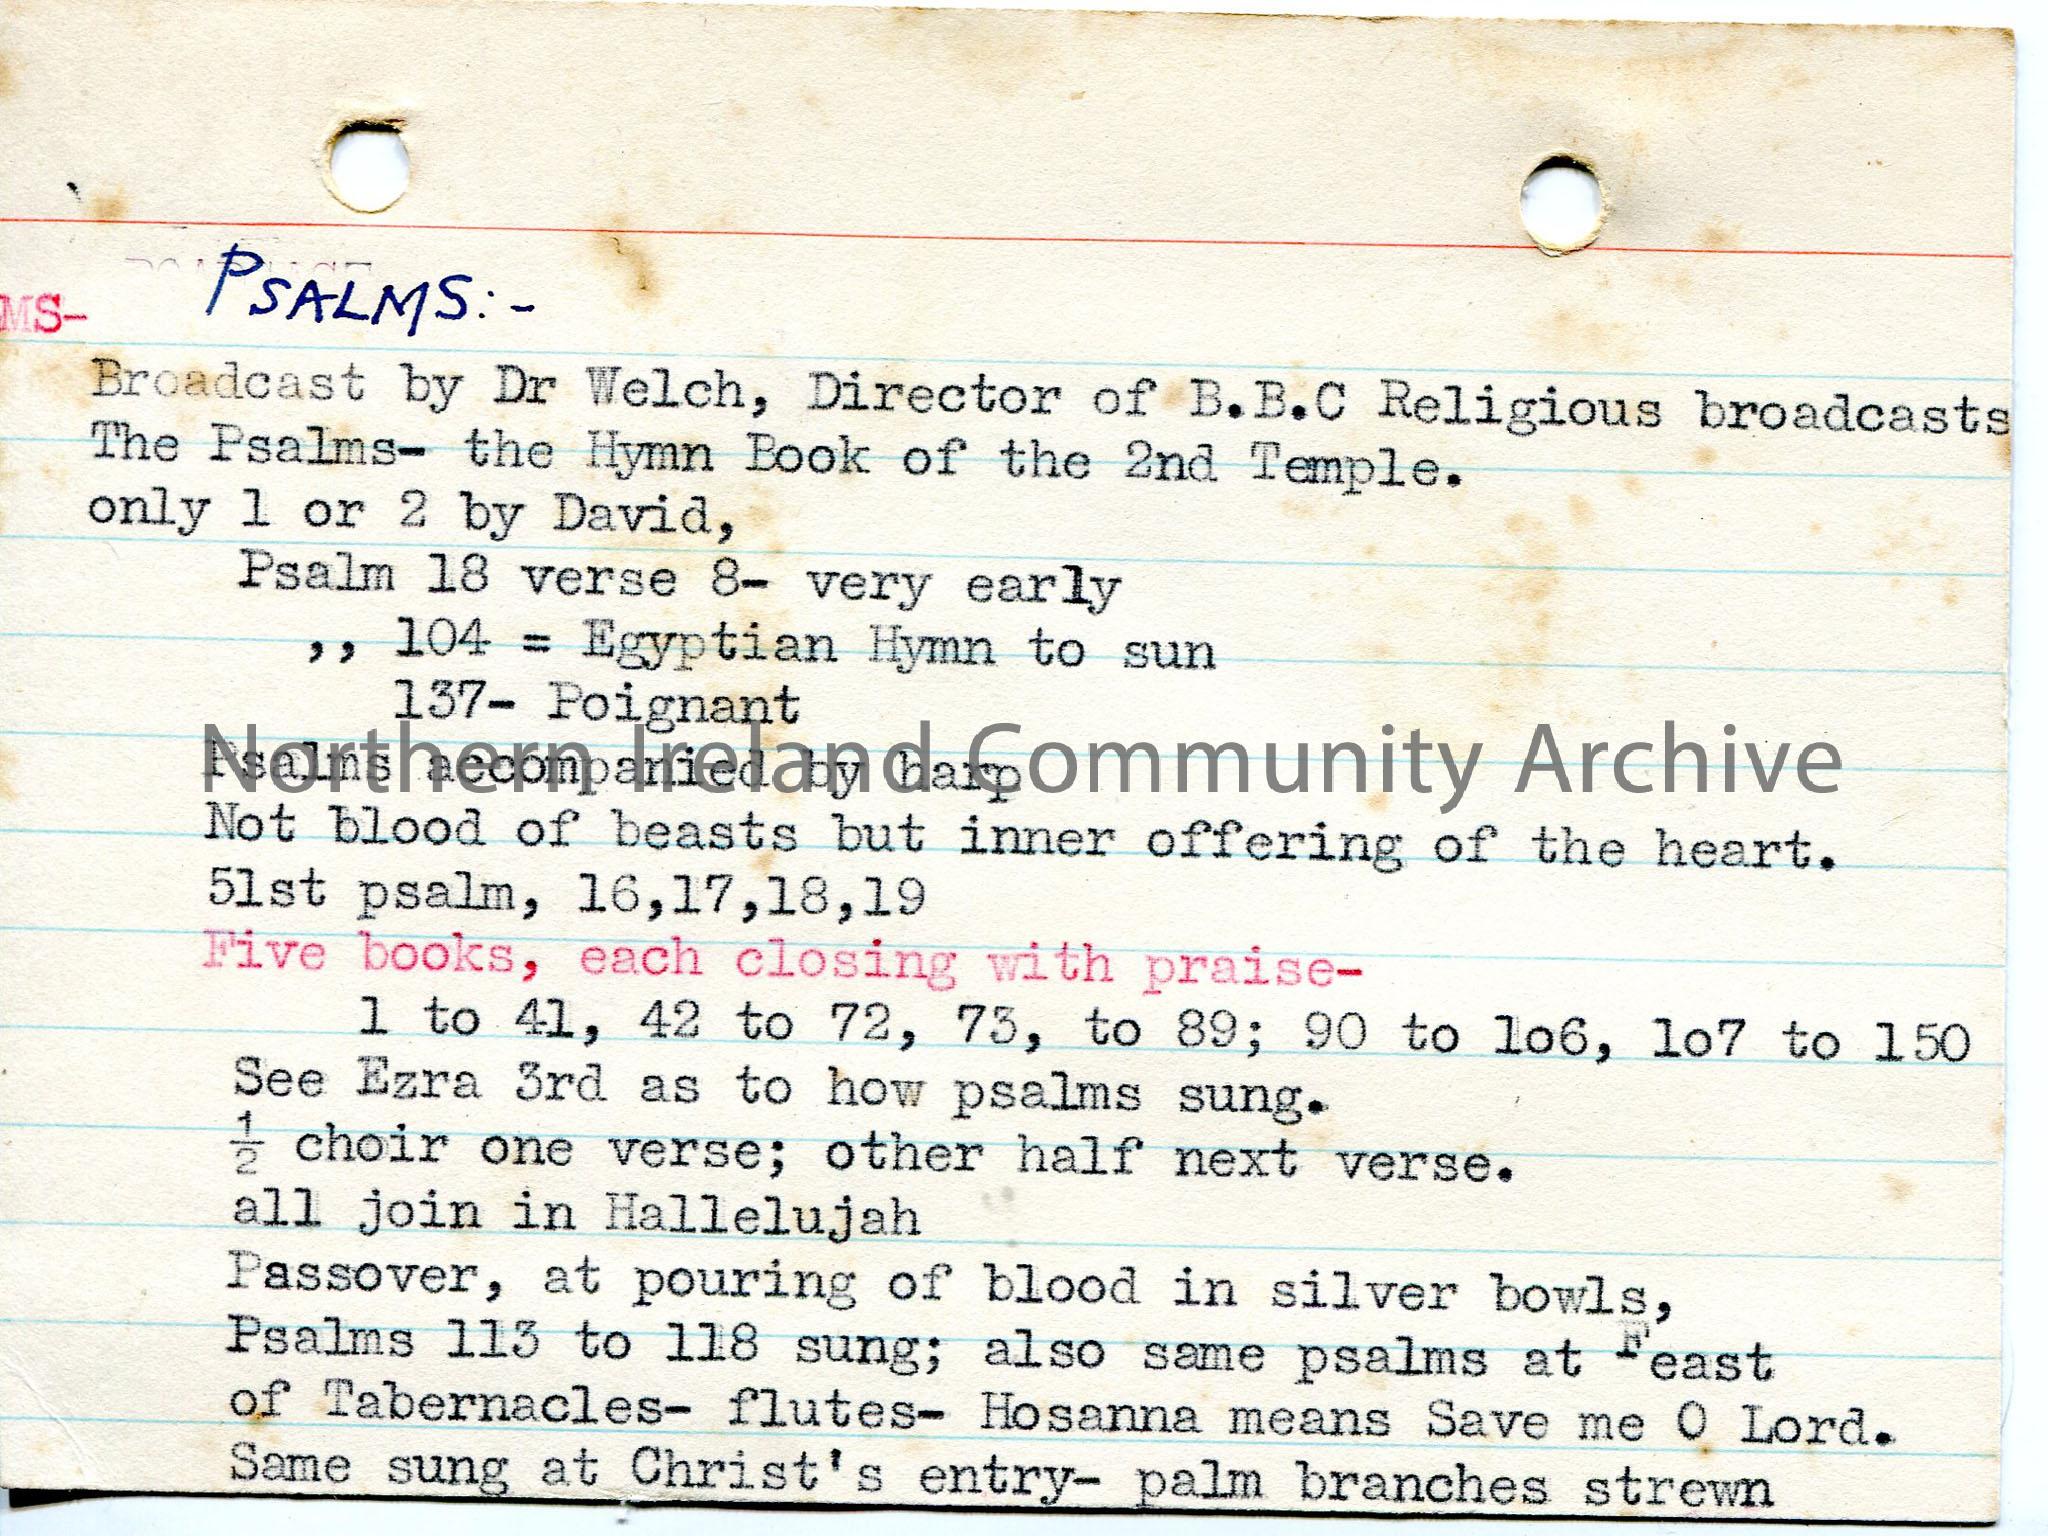 PSALMS:-
MS-
Broadcast by Dr Welch, Director of B.B.C Religious broadcasts
The Psalms- the Hymn Book of the 2nd Temple.
only 1 or 2 by David,
Psalm 18 verse 8- very early
,, 104 = Egyptian Hymn to sun
137- Poignant
Psalms accompanied by harp
Northern Ireland Community Archive
Not blood of beasts but inner offering of the heart.
51st psalm, 16,17,18,19
Five books, each closing with praise-
1 to 41, 42 to 72, 73, to 89; 90 to 1o6, 1o7 to 150
See Ezra 3rd as to how psalms sung.
½ choir one verse; other half next verse.
all join in Hallelujah
Passover, at pouring of blood in silver bowls,
Psalms 113 to 118 sung; also same psalms at Feast
of Tabernacles- flutes- Hosanna means Save me O Lord.
Same sung at Christ's entry- palm branches strewn